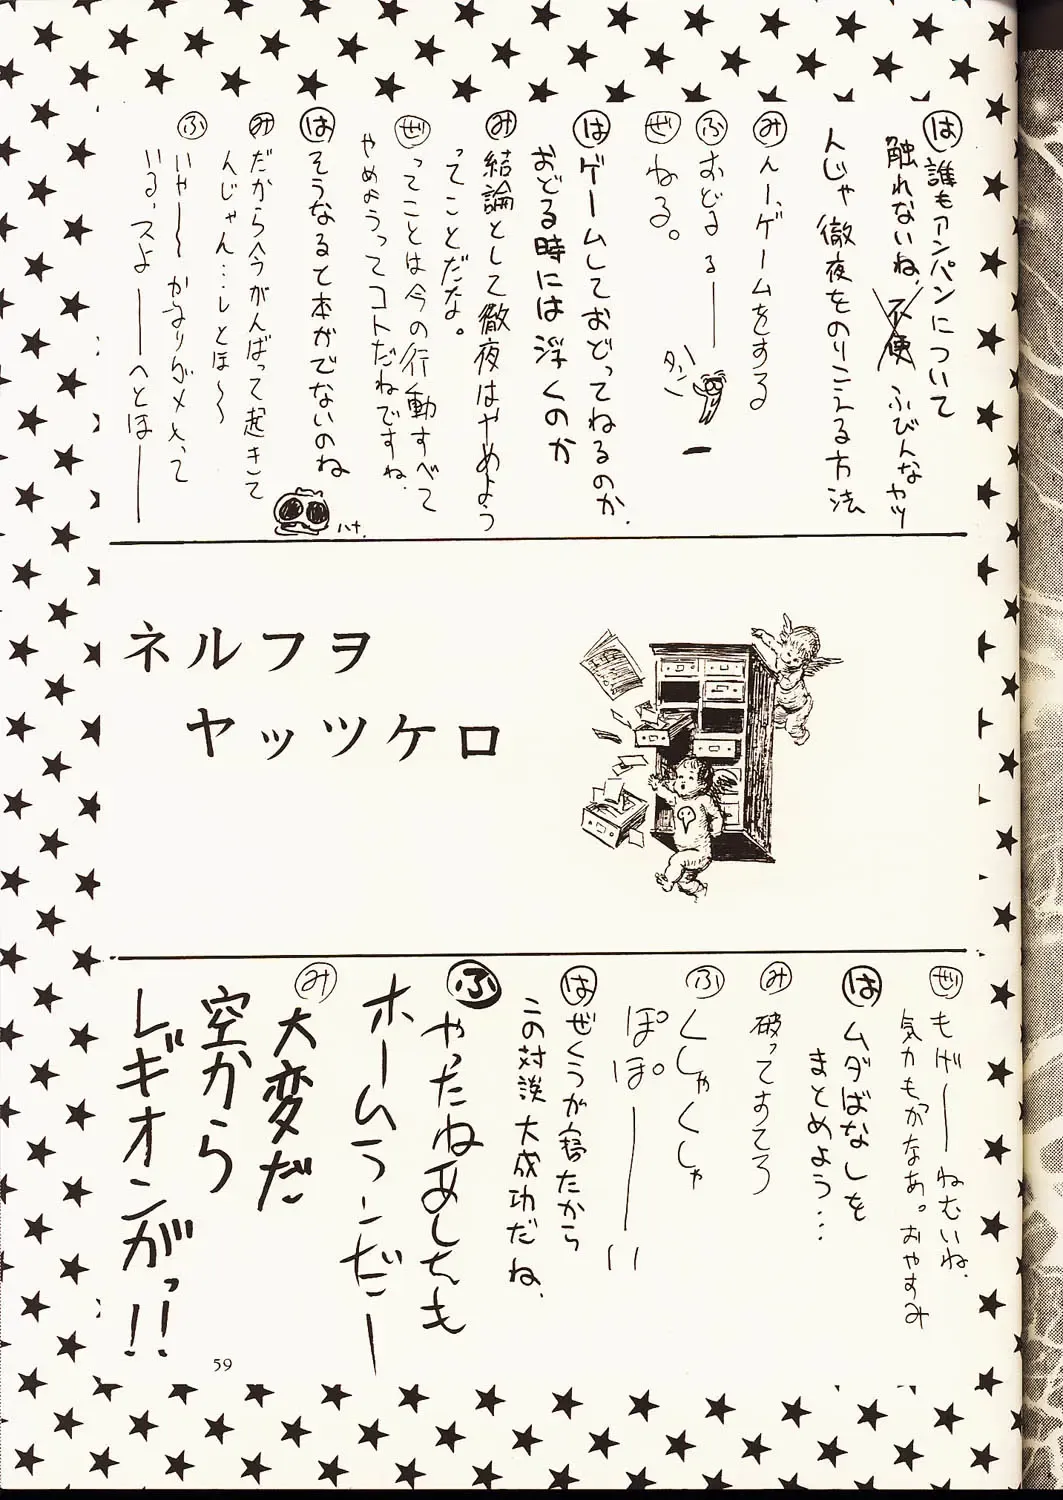 は 誰もアンパンについて
触れないね、不便 ふびんなヤツ
んじゃ徹夜をのりこえる方法
み んー、ゲームをする
ふ おどる——
タン
ぜ ねる。
は ゲームしておどってねるのか、
おどる時には浮くのか
み 結論として徹夜はやめよう
ってことだな。
ぜ ってことは今の行動すべて
やめようってコトだねですね、
は そうなると本がでないのね
ハナ
み だから今がんばって起きて
んじゃん…しとほ〜〜
ふ いや〜〜かなりがメメって
いる、スよ——へとほ——
ネルフヲ
ヤッツケロ
ぜ もげ——ねむいね、
気力もつかなあ。おやすみ
は ムダばなしを
まとめよう…
み 破ってすてろ
ふ くしゃくしゃ
ぽぽ——い
は ぜくうが寝たから
この対談大成功だね、
ふ やったねあしたも
ホームランだー
み 大変だ
空から
レギオンがっ!!
59